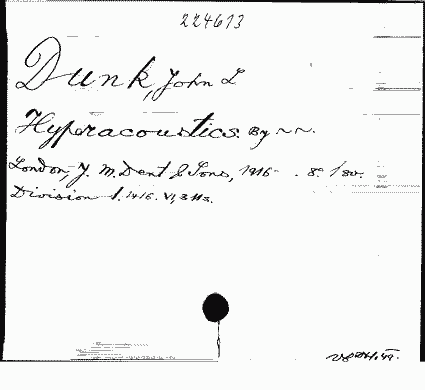 224613
Dunk, John L
Hyperacoustics. By ~~.
London, J. M. Dent & Sons, 1916- . 8°.
Division 1. 1916.